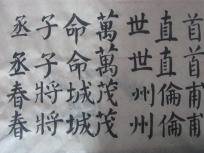 首首甫甫
直直倫倫
世世州州
萬萬茂茂
命命城城
子子將將
丞丞春春